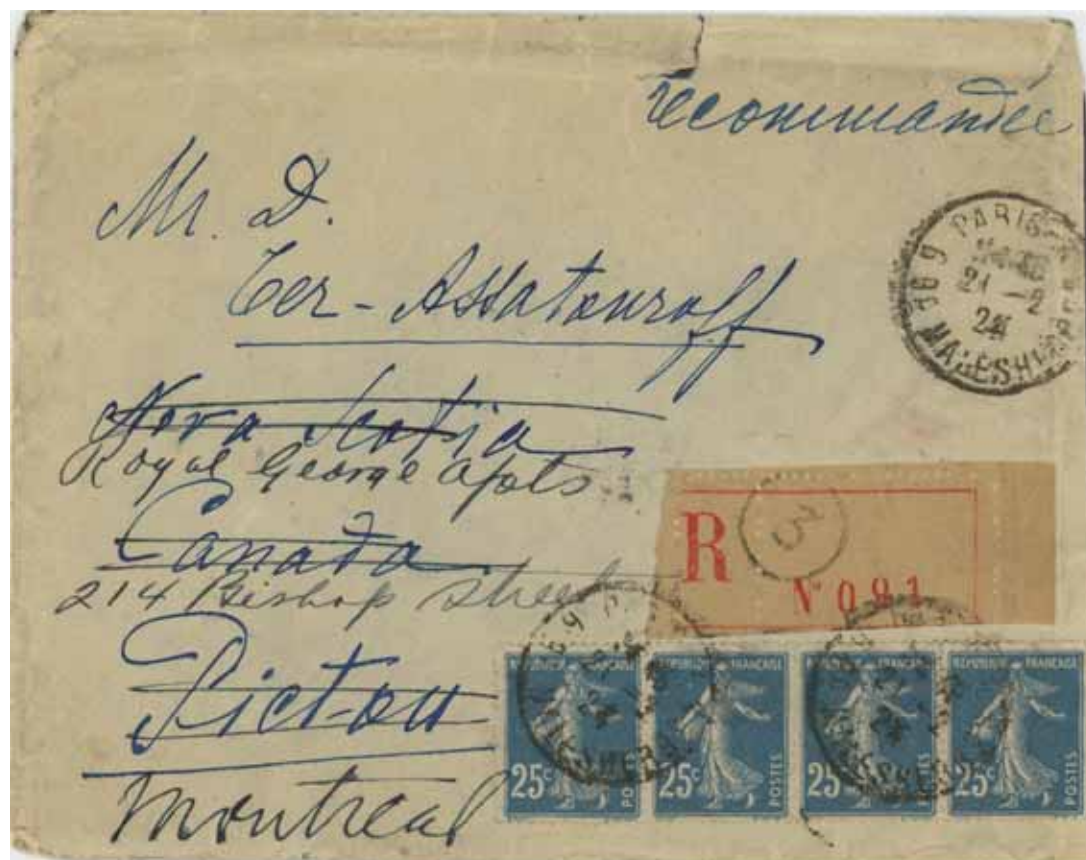 recommandée
Mr. D.
Ter-Assatouroff
Nova Scotia
Royal George Apts
Canada
214 Bishop Street
Pictou
Montreal
PARIS
21 -2
24
69 MALESHERBES
R
3
N 081
REPUBLIQUE FRANÇAISE
25c POSTES
REPUBLIQUE FRANÇAISE
25c POSTES
REPUBLIQUE FRANÇAISE
25c POSTES
REPUBLIQUE FRANÇAISE
25c POSTES